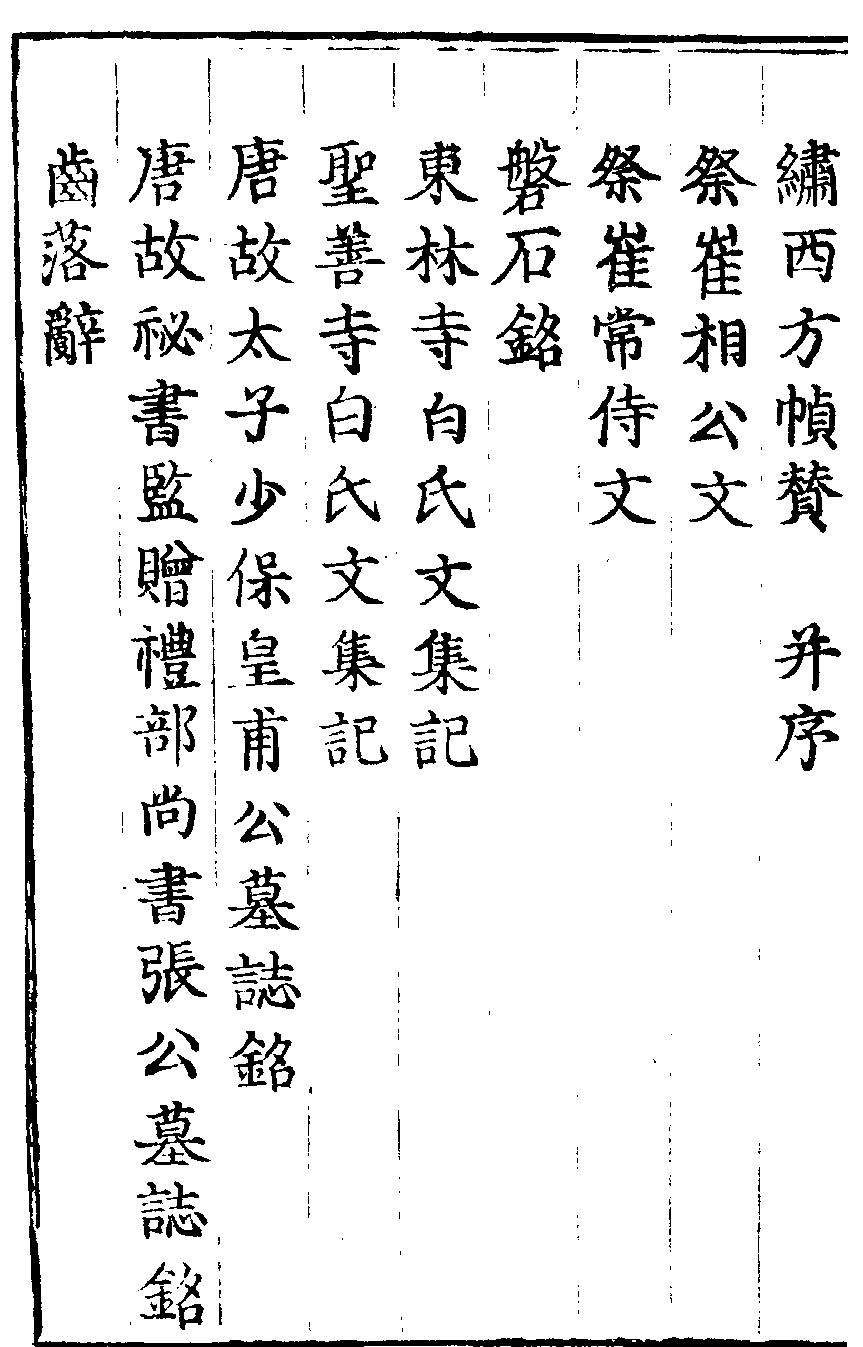 繡西方幀賛　并序
祭崔相公文
祭崔常侍文
磐石銘
東林寺白氏文集記
聖善寺白氏文集記
唐故太子少保皇甫公墓誌銘
唐故祕書監贈禮部尚書張公墓誌銘
齒落辭